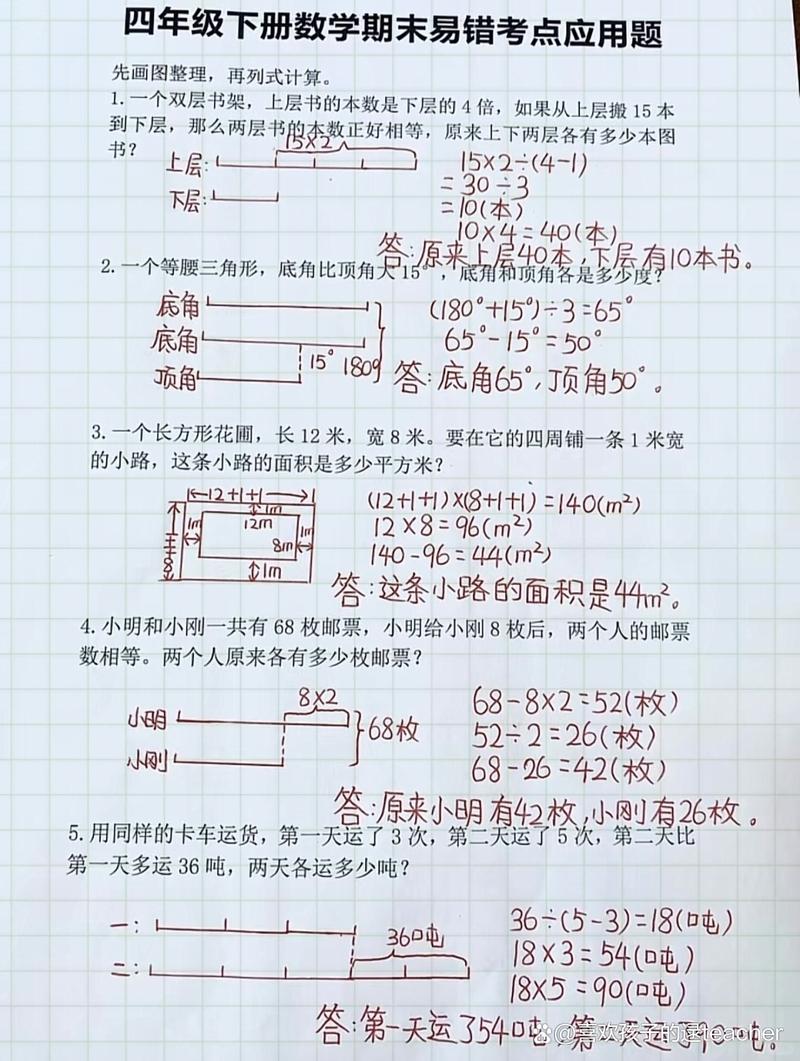 四年级下册数学期末易错考点应用题
先画图整理，再列式计算。
1.一个双层书架，上层书的本数是下层的4倍，如果从上层搬15本
到下层，那么两层书的本数正好相等，原来上下两层各有多少本图
书？
15×2
上层:
下层:
15×2÷(4-1)
=30÷3
=10(本)
10×4=40(本)
答:原来上层40本,下层有10本书。
2.一个等腰三角形，底角比顶角大15°，底角和顶角各是多少度？
底角
底角
顶角
15°
180°
(180°+15°)÷3=65°
65°-15°=50°
答:底角65°,顶角50°。
3.一个长方形花圃，长12米，宽8米。要在它的四周铺一条1米宽
的小路，这条小路的面积是多少平方米？
12+1+1
1m
12m
1m
1m
8m
1m
8+1+1
(12+1+1)×(8+1+1)=140(m²)
12×8=96(m²)
140-96=44(m²)
答:这条小路的面积是44m²。
4.小明和小刚一共有68枚邮票，小明给小刚8枚后，两个人的邮票
数相等。两个人原来各有多少枚邮票？
8×2
小明
小刚
68枚
68-8×2=52(枚)
52÷2=26(枚)
68-26=42(枚)
答:原来小明有42枚,小刚有26枚。
5.用同样的卡车运货，第一天运了3次，第二天运了5次，第二天比
第一天多运36吨，两天各运多少吨？
一:
36吨
二:
36÷(5-3)=18(吨)
18×3=54(吨)
18×5=90(吨)
答:第一天运了54吨,第二天运了90吨。
@喜欢孩子的逯teacher